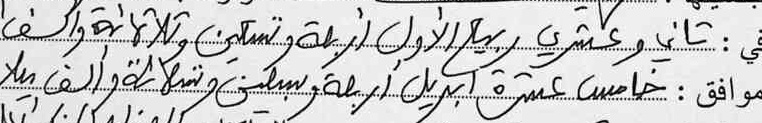 في : ثاني وعشري ربيع الأول أربعة وتسعين وثلاثمائة وألف
موافق : خامس عشرة ابريل أربعة وسبعين وتسعمائة وألف ميلا